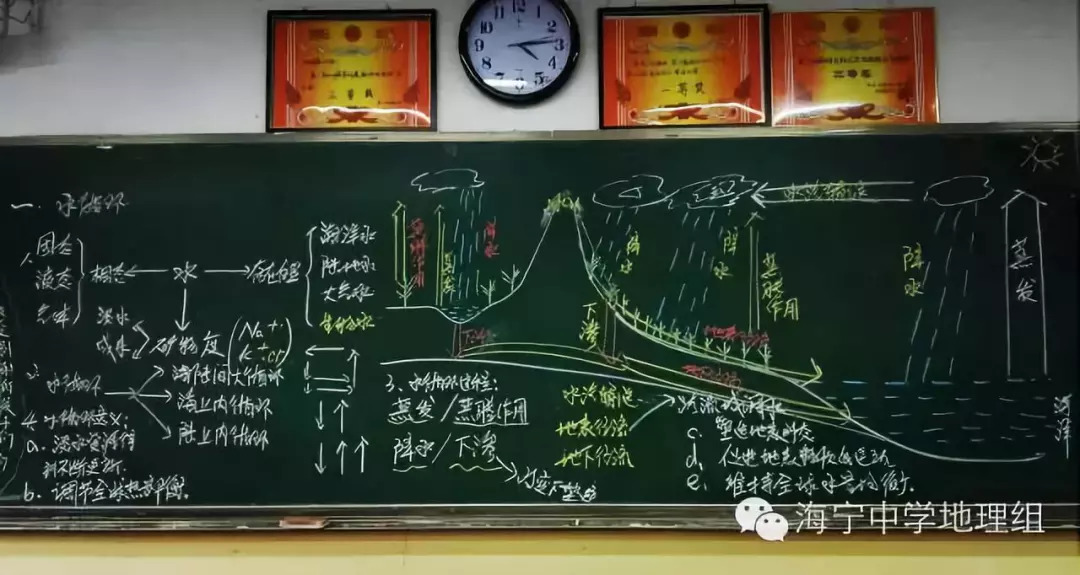 三等奖
12
1
2
3
4
5
6
7
8
9
10
11
一等奖
三等奖
一、水循环
1、固态
液态
气体
相态
水
海洋水
陆地水
大气水
生物水
淡水
咸水
矿物度
Na+
K+
Cl-
2、水循环
海陆间大循环
海上内循环
陆上内循环
3、水循环过程:
蒸发/蒸腾作用
降水/下渗
水汽输送
地表径流
地下径流
4、水循环意义:
a、淡水资源得
到不断更新.
b、调节全球热量平衡.
c、塑造地表形态
d、促进地表物质
e、维持全球水量均衡.
蒸腾作用
蒸发
降水
下渗
下渗
降水
降水
蒸腾作用
水汽输送
降水
蒸发
海洋
海宁中学地理组